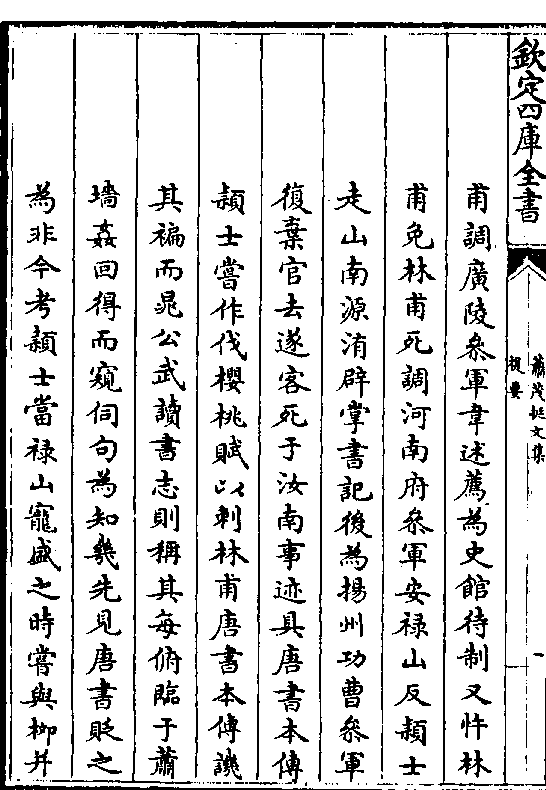 欽定四庫全書
蕭茂挺文集
提要
一
甫調廣陵叅軍韋述薦為史館待制又忤林
甫免林甫死調河南府叅軍安禄山反頴士
走山南源洧辟掌書記後為揚州功曹叅軍
復棄官去遂客死于汝南事迹具唐書本傳
頴士嘗作伐櫻桃賦以刺林甫唐書本傳譏
其褊而晁公武讀書志則稱其每俯臨于蕭
墻姦回得而窺伺句為知幾先見唐書貶之
為非今考頴士當禄山寵盛之時嘗與栁并